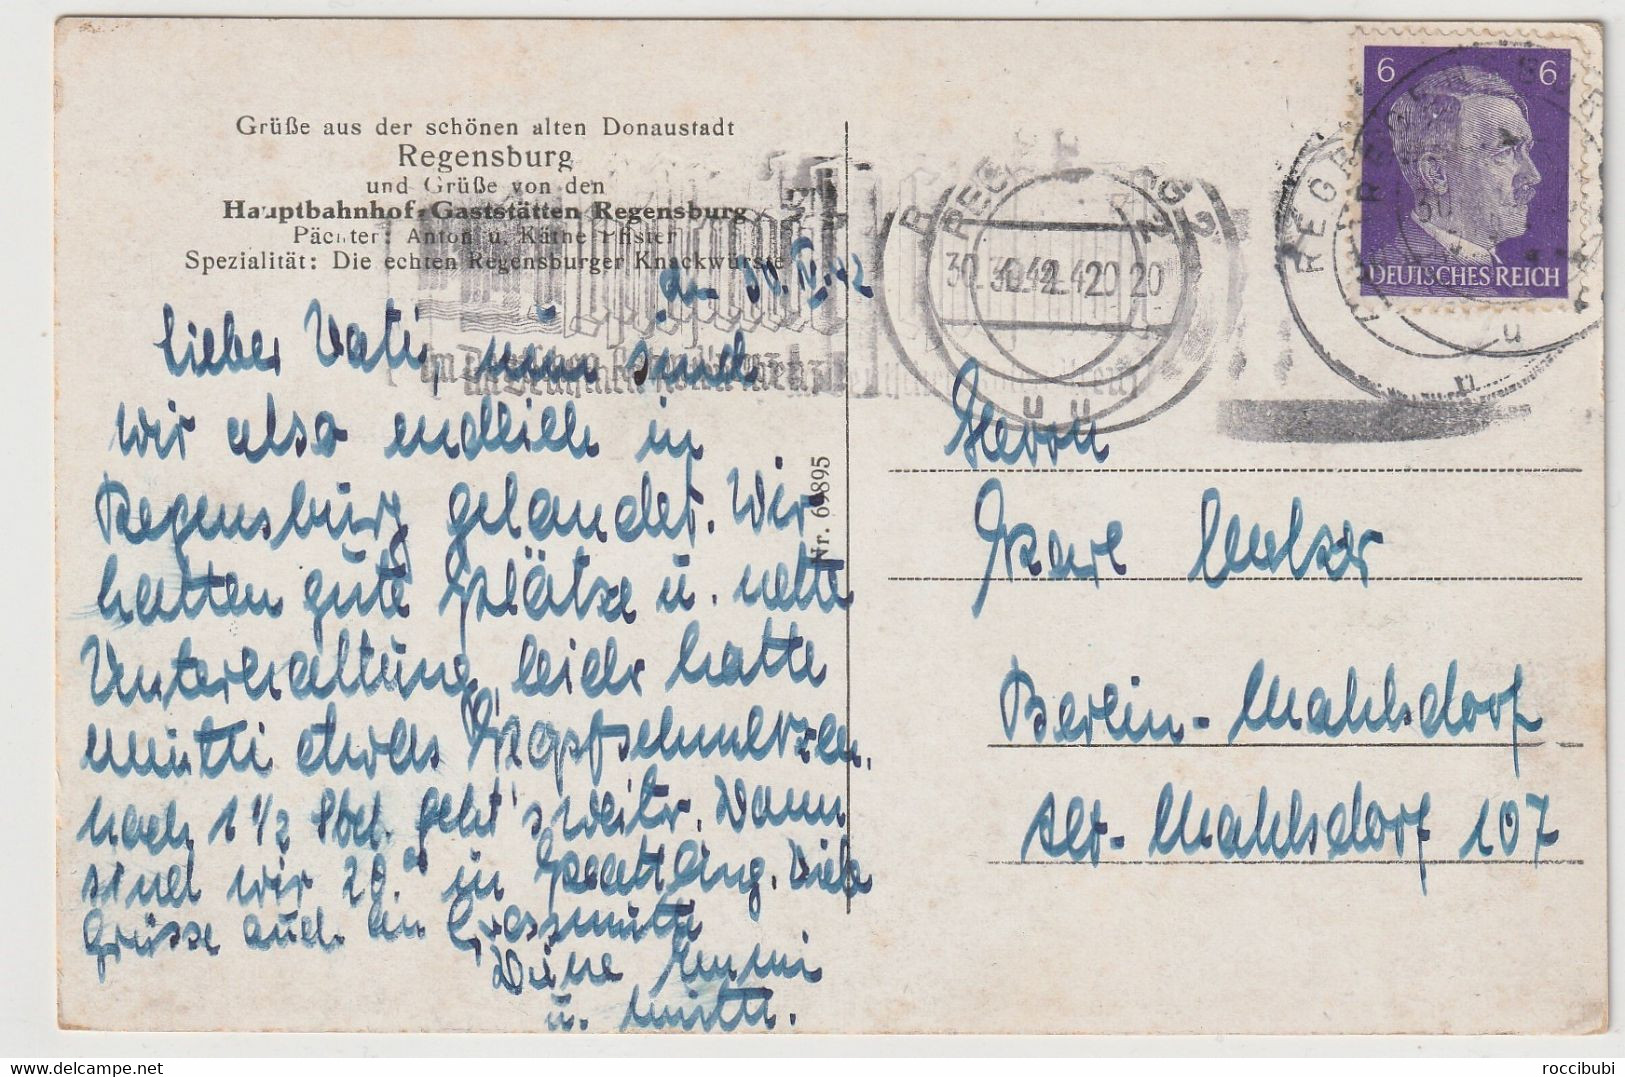 Grüße aus der schönen alten Donaustadt
Regensburg
und Grüße von den
Hauptbahnhof-Gaststätten Regensburg
Pächter: Anton u. Käthe Pfister
Spezialität: Die echten Regensburger Knackwürste
den 30. IV. 42
Lieber Vati, nun sind
wir also endlich in
Regensburg gelandet. Wir
hatten gute Plätze u. nette
Unterhaltung, leider hatte
Mutti etwas Kopfschmerzen.
Nach 1 1/2 Std. geht's weiter. Dann
sind wir 20.⁰⁰ in Plattling. Viele
Grüsse auch an Grossmutti
Deine Emmi
u. Mutti.
Nr. 69895
REGENSBURG 2
30.4.42.20
u
6 6
DEUTSCHES REICH
Herrn
Karl
Berlin-Mahlsdorf
Alt-Mahlsdorf 107
roccibubi